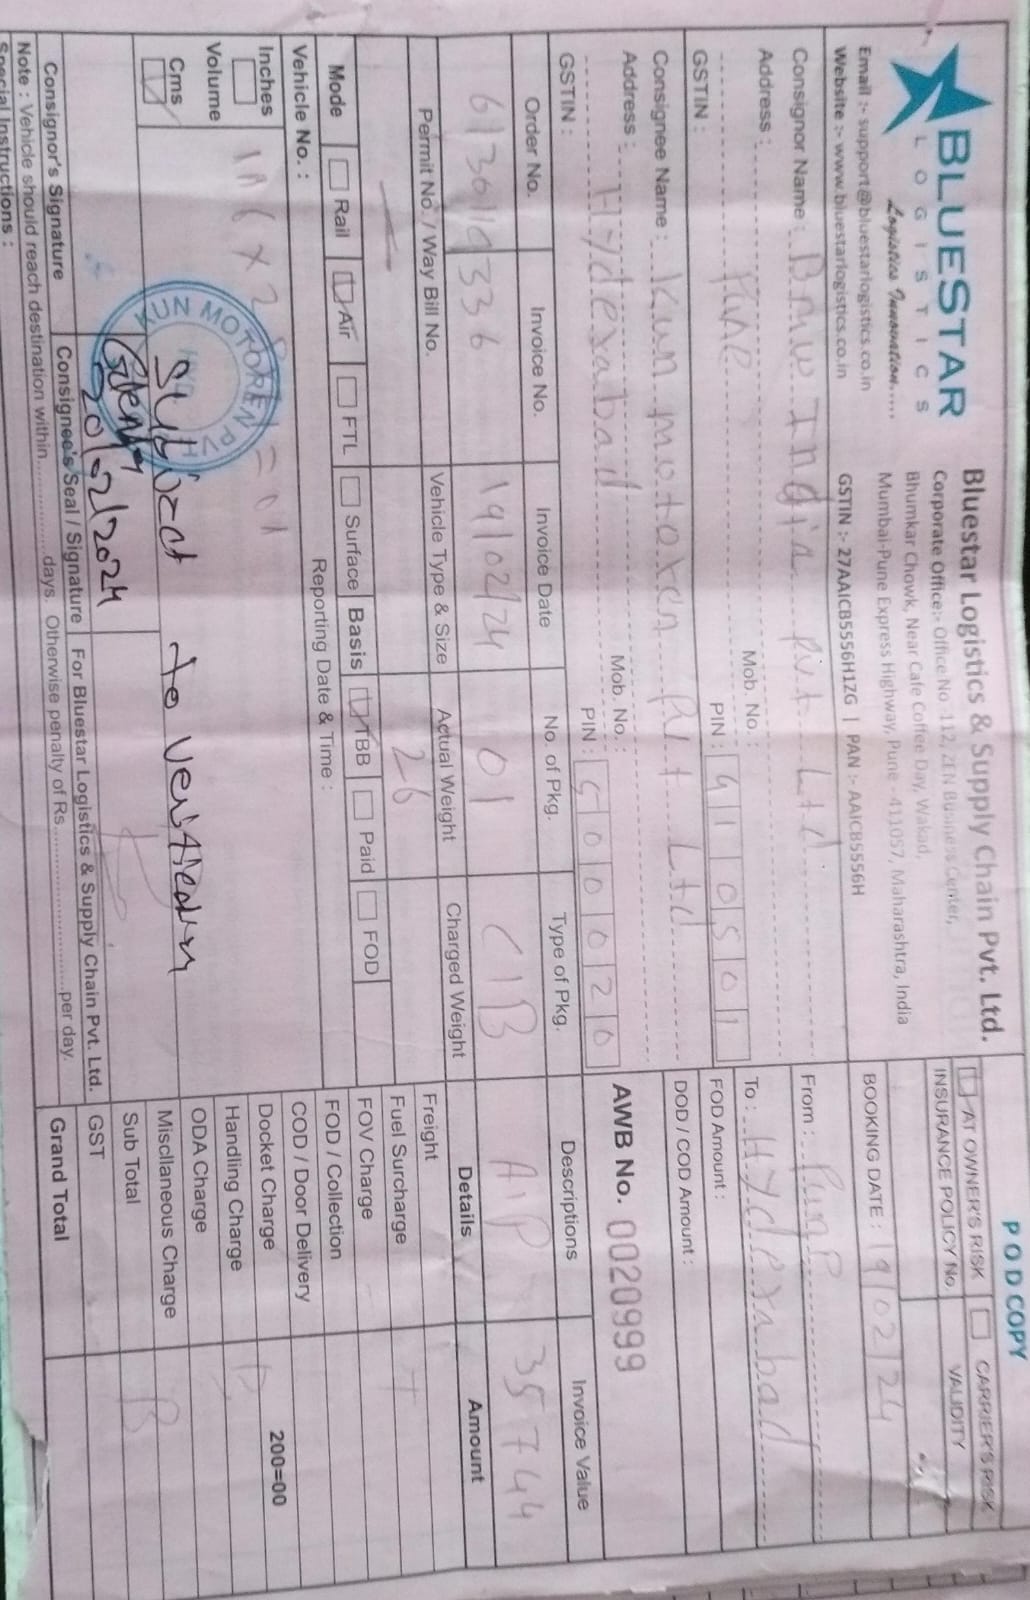 POD COPY
BLUESTAR
LOGISTICS
Logistics Innovation.....
Email :- support@bluestarlogistics.co.in
Website :- www.bluestarlogistics.co.in
Bluestar Logistics & Supply Chain Pvt. Ltd.
Corporate Office:- Office No -112, ZEN Business Center,
Bhumkar Chowk, Near Cafe Coffee Day, Wakad,
Mumbai-Pune Express Highway, Pune - 411057, Maharashtra, India
GSTIN :- 27AAICB5556H1ZG | PAN :- AAICB5556H
AT OWNER'S RISK CARRIER'S RISK
INSURANCE POLICY No. VALIDITY
BOOKING DATE : 19/02/24
Consignor Name : BMW India Pvt Ltd
Address :
Pune
Mob. No. :
PIN : 410501
GSTIN :
From : Pune
To : Hyderabad
FOD Amount :
DOD / COD Amount :
Consignee Name : Kun motoren Pvt Ltd
Address :
Hyderabad
Mob. No. :
PIN : 500020
GSTIN :
AWB No. 0020999
Order No. Invoice No. Invoice Date No. of Pkg. Type of Pkg. Descriptions Invoice Value
336 19/02/24 01 C/B A/P 35744
Permit No. / Way Bill No. Vehicle Type & Size Actual Weight Charged Weight Details Amount
26
Mode Rail Air FTL Surface Basis TBB Paid FOD
Vehicle No. : Reporting Date & Time :
Inches
Volume
Cms
KUN MOTOREN PVT
Subject to Verification
20/02/2024
Freight
Fuel Surcharge
FOV Charge
FOD / Collection
COD / Door Delivery
Docket Charge 200=00
Handling Charge
ODA Charge
Miscllaneous Charge
Sub Total
GST
Grand Total
Consignor's Signature Consignee's Seal / Signature For Bluestar Logistics & Supply Chain Pvt. Ltd.
Note : Vehicle should reach destination within.................days. Otherwise penalty of Rs..............................per day.
Special Instructions :